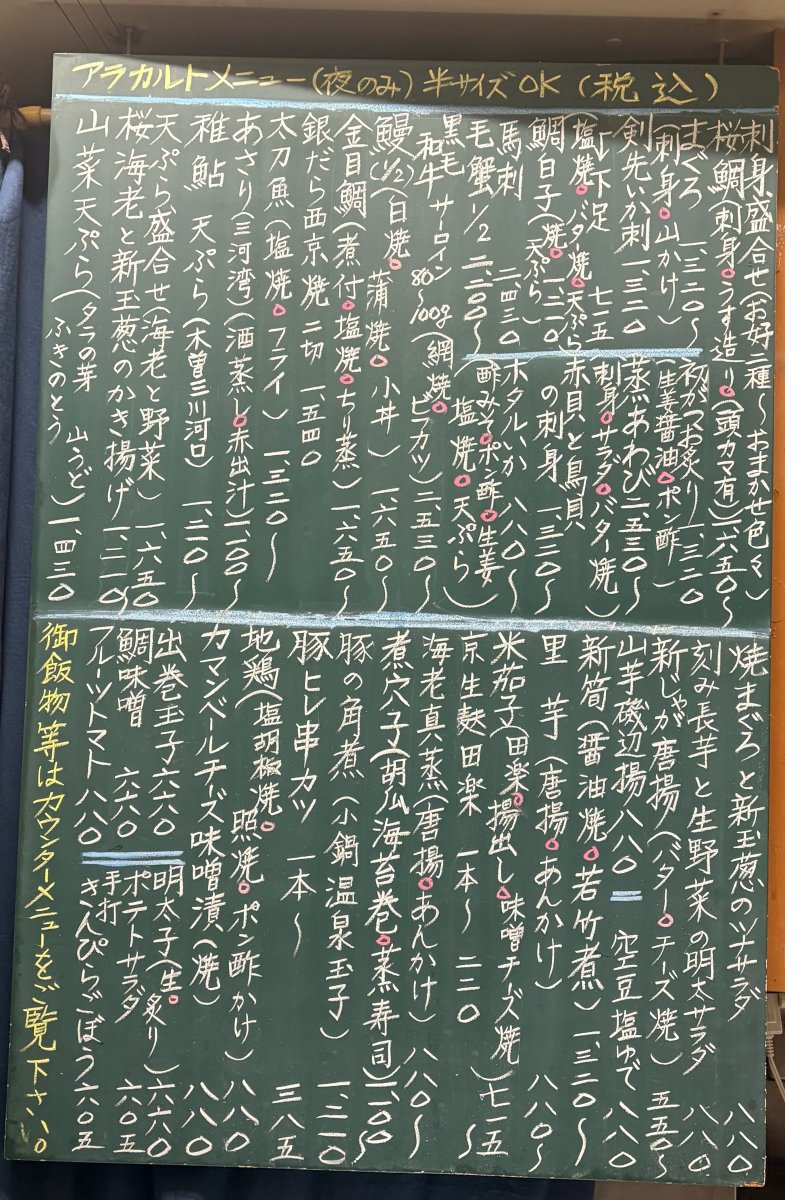 アラカルトメニュー(夜のみ) 半サイズOK (税込)
刺身盛合せ(お好二種〜おまかせ色々)
桜鯛(刺身。うす造り。(頭カマ有)一、六五〇〜
まぐろ 一、三二〇〜
(刺身。山かけ)
初がつお炙り一、三二〇
(生姜醤油。ポン酢)
剣先いか刺 一、三二〇
蒸あわび二、五三〇〜
(刺身。サラダ。バター焼)
〃下足 七一五
(塩焼。バター焼。天ぷら)
赤貝と鳥貝の刺身 一、三二〇〜
鯛白子(焼。天ぷら) 一、三二〇
馬刺 二、四三〇
ホタルいか 八八〇〜
(酢みそ。ポン酢。生姜
塩焼。天ぷら)
毛蟹1/2 二、二〇〇〜
黒毛和牛 サーロイン 80〜100g(網焼。ビフカツ)二、五三〇〜
鰻(1/2)(白焼。蒲焼。小丼) 一、六五〇〜
金目鯛(煮付。塩焼。ちり蒸) 一、六五〇
銀だら西京焼 二切 一、五四〇
太刀魚(塩焼。フライ) 一、三二〇〜
あさり(三河湾)(酒蒸し。赤出汁)一、一〇〇〜
稚鮎 天ぷら(木曽三川河口) 一、二一〇〜
天ぷら盛合せ(海老と野菜) 一、六五〇
桜海老と新玉葱のかき揚げ一、二一〇
山菜天ぷら(タラの芽 山うど ふきのとう)一、四三〇
焼まぐろと新玉葱のツナサラダ 八八〇
刻み長芋と生野菜の明太サラダ 八八〇
新じゃが唐揚(バター。チーズ焼) 五五〇〜
山芋磯辺揚八八〇
空豆塩ゆで 八八〇
新筍(醤油焼。若竹煮) 一、三二〇〜
里芋(唐揚。あんかけ) 八八〇〜
米茄子(田楽。揚出し。味噌チーズ焼) 七一五
京生麩田楽 一本〜 二二〇
海老真蒸(唐揚。あんかけ) 八八〇〜
煮穴子(胡瓜海苔巻。蒸寿司)一、一〇〇〜
豚の角煮(小鍋温泉玉子) 一、二一〇
豚ヒレ串カツ 一本〜 三八五
地鶏(塩胡椒焼。照焼。ポン酢かけ) 八八〇
カマンベールチーズ味噌漬(焼) 八八〇
出巻玉子六六〇
明太子(生。炙り)六六〇
鯛味噌 六六〇
ポテトサラダ 六〇五
フルーツトマト八八〇
手打きんぴらごぼう六〇五
御飯物等はカウンターメニューをご覧下さい。